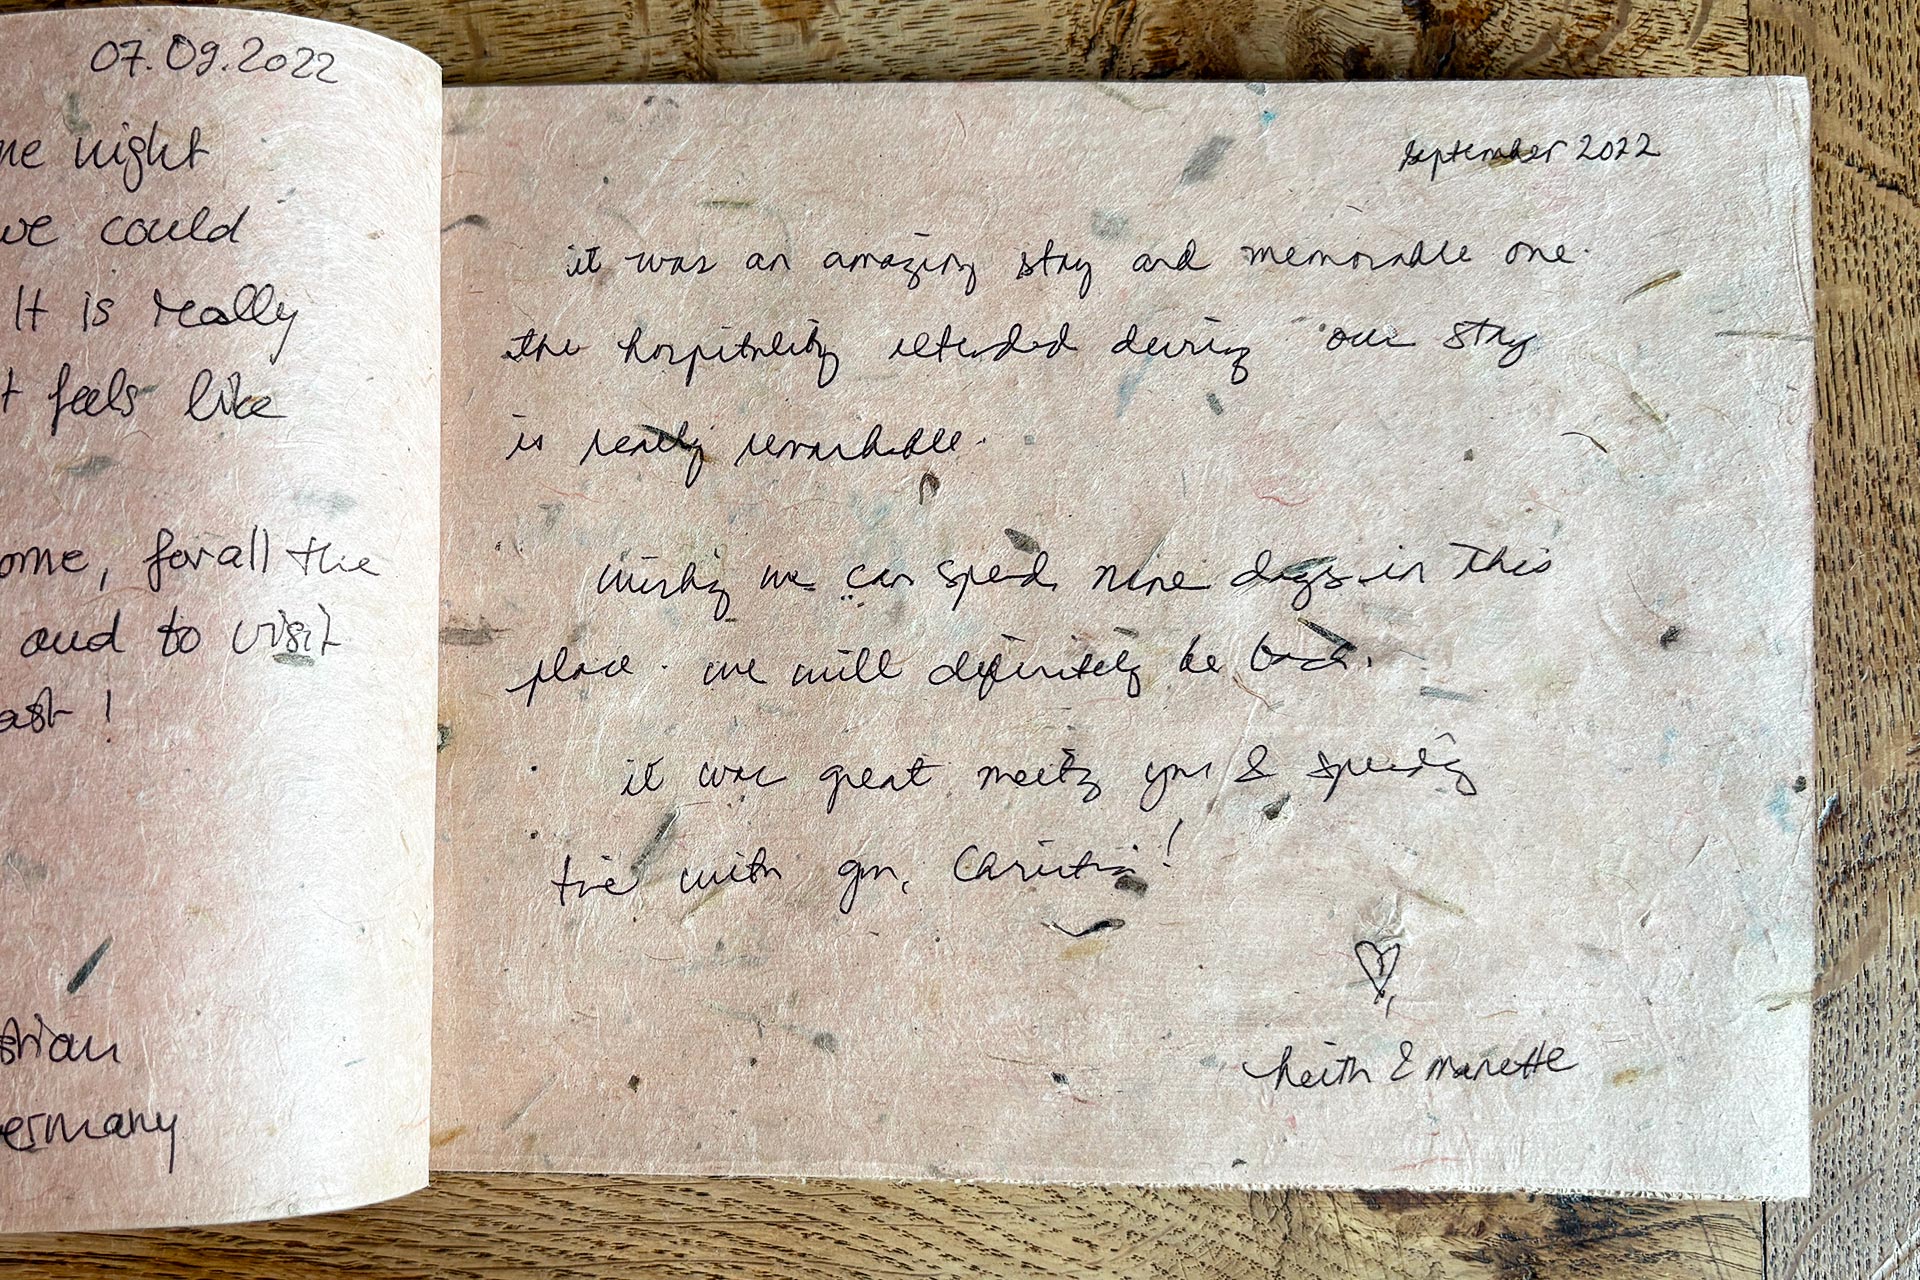 07.09.2022
ne night
we could
It is really
t feels like
ome, for all the
and to visit
ast !
stian
ermany
September 2022
it was an amazing stay and memorable one.
the hospitality extended during our stay
is really remarkable.
wishing we can spend more days in this
place. we will definitely be back.
it was great meeting you & spending
time with you,
Keith & Manette